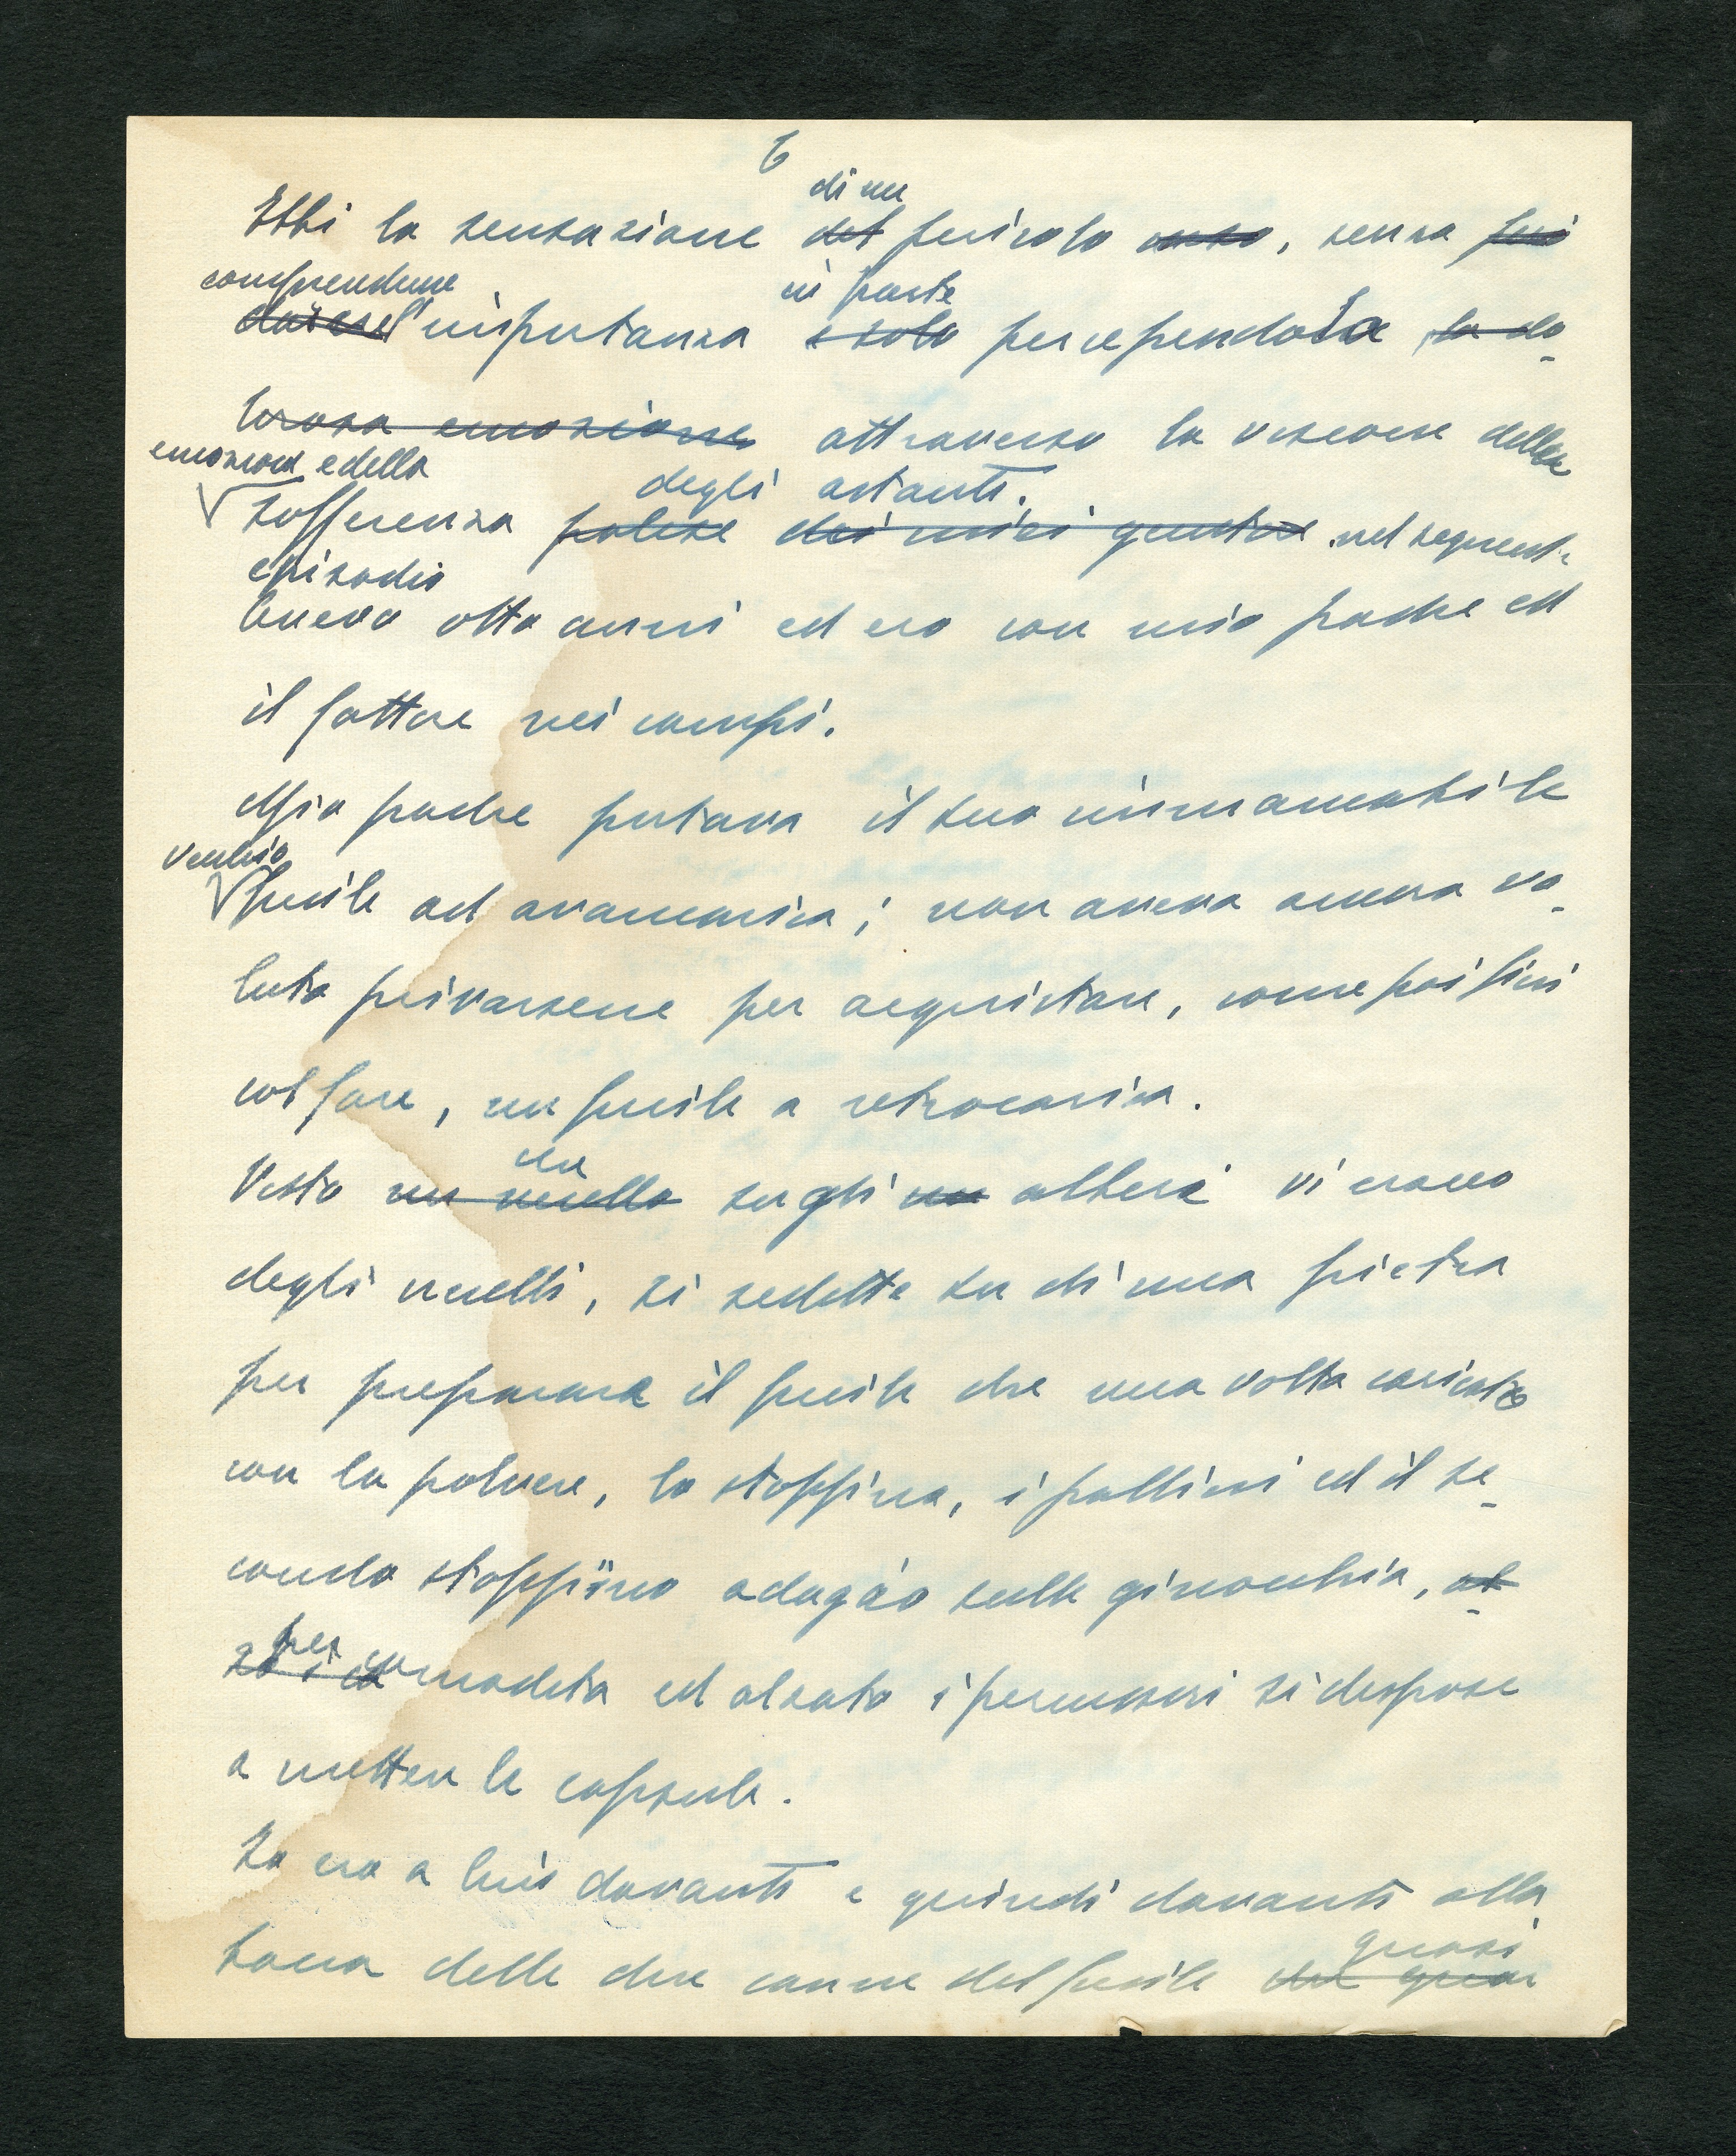 6
di un
Ebbi la sensazione del pericolo corso, senza però
comprenderne in parte
darcene l'importanza e solo percependola la do-
lorosa emozione attraverso la visione della
emozione e della degli astanti.
sofferenza palese dei miei genitori nel seguente
episodio
Avevo otto anni ed ero con mio padre ed
il fattore nei campi.
Mio padre portava il suo immancabile
vecchio
fucile ad avancarica; non aveva ancora vo-
luto privarsene per acquistare, come poi finì
col fare, un fucile a retrocarica.
che
Visto un uccello sugli un alberi vi erano
degli uccelli, si sedette su di una pietra
per preparare il fucile che una volta caricato
con la polvere, lo stoppino, i pallini ed il se-
condo stoppino adagiò sulle ginocchia, al
per
comodità ed alzato i percussori si dispose
a mettere le capsule.
Io ero a lui davanti e quindi davanti alla
quasi
bocca delle due canne del fucile che quasi